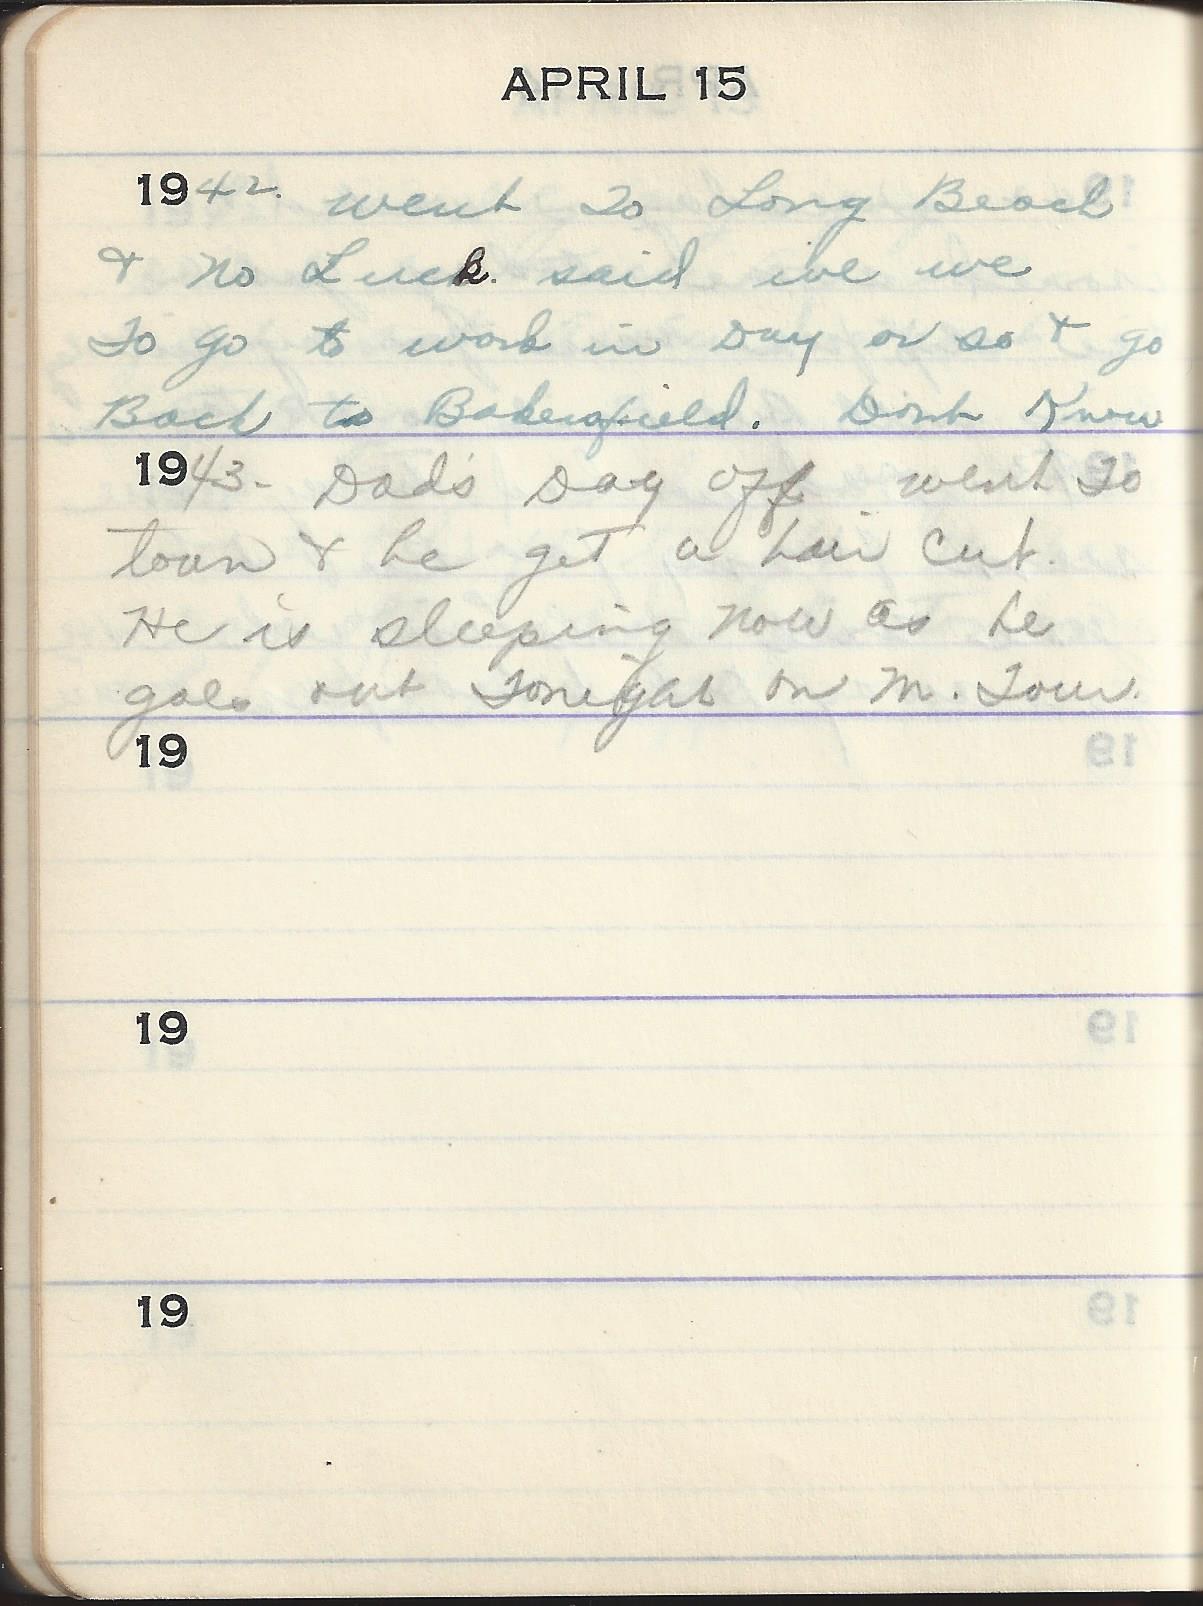 APRIL 15
1942. went To Long Beach
& No Luck. said we we
To go to work in Day or so & go
Back to Bakersfield. Dont Know
1943- Dad's Day off went To
town & he get a hair cut.
He is sleeping now as he
goes out Tonight on M. Tour.
19
19
19